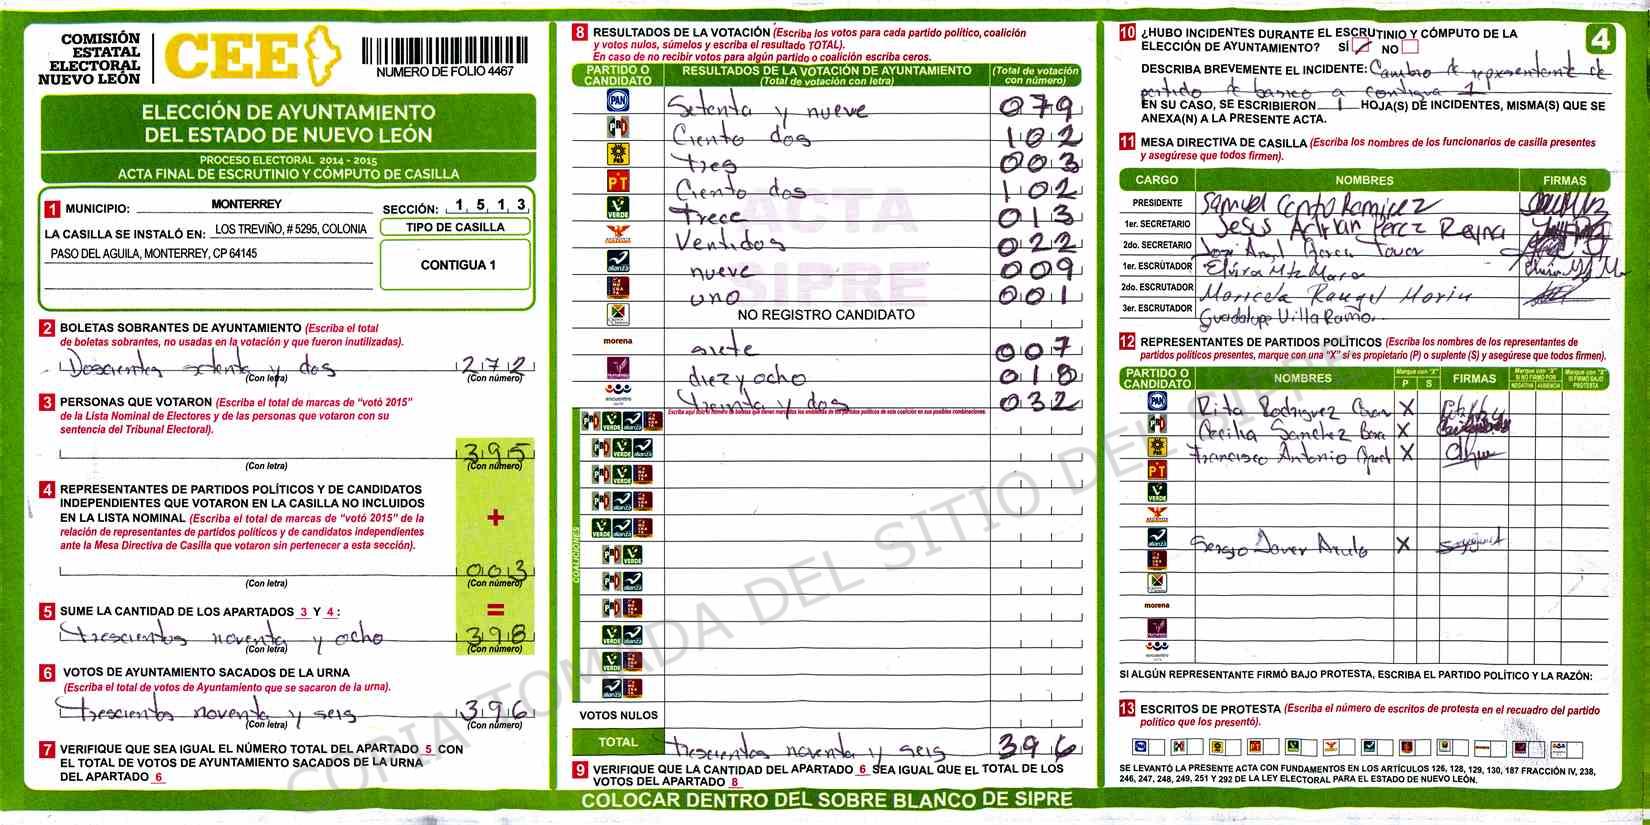 COMISIÓN
ESTATAL
ELECTORAL
NUEVO LEÓN
CEE
NUMERO DE FOLIO 4467
ELECCIÓN DE AYUNTAMIENTO
DEL ESTADO DE NUEVO LEÓN
PROCESO ELECTORAL 2014 - 2015
ACTA FINAL DE ESCRUTINIO Y CÓMPUTO DE CASILLA
1 MUNICIPIO: MONTERREY SECCIÓN: 1, 5, 1, 3
LA CASILLA SE INSTALÓ EN: LOS TREVIÑO, # 5295, COLONIA
PASO DEL AGUILA, MONTERREY, CP 64145
TIPO DE CASILLA
CONTIGUA 1
2 BOLETAS SOBRANTES DE AYUNTAMIENTO (Escriba el total
de boletas sobrantes, no usadas en la votación y que fueron inutilizadas).
Doscientos setenta y dos 272
(Con letra) (Con número)
3 PERSONAS QUE VOTARON (Escriba el total de marcas de “votó 2015”
de la Lista Nominal de Electores y de las personas que votaron con su
sentencia del Tribunal Electoral).
395
(Con letra) (Con número)
4 REPRESENTANTES DE PARTIDOS POLÍTICOS Y DE CANDIDATOS
INDEPENDIENTES QUE VOTARON EN LA CASILLA NO INCLUIDOS
EN LA LISTA NOMINAL (Escriba el total de marcas de “votó 2015” de la
relación de representantes de partidos políticos y de candidatos independientes
ante la Mesa Directiva de Casilla que votaron sin pertenecer a esta sección).
+
003
(Con letra) (Con número)
5 SUME LA CANTIDAD DE LOS APARTADOS 3 Y 4 : =
trescientos noventa y ocho 398
(Con letra) (Con número)
6 VOTOS DE AYUNTAMIENTO SACADOS DE LA URNA
(Escriba el total de votos de Ayuntamiento que se sacaron de la urna).
trescientos noventa y seis 396
(Con letra) (Con número)
7 VERIFIQUE QUE SEA IGUAL EL NÚMERO TOTAL DEL APARTADO 5 CON
EL TOTAL DE VOTOS DE AYUNTAMIENTO SACADOS DE LA URNA
DEL APARTADO 6
8 RESULTADOS DE LA VOTACIÓN (Escriba los votos para cada partido político, coalición
y votos nulos, súmelos y escriba el resultado TOTAL).
En caso de no recibir votos para algún partido o coalición escriba ceros.
PARTIDO O CANDIDATO RESULTADOS DE LA VOTACIÓN DE AYUNTAMIENTO (Total de votación con letra) (Total de votación con número)
PAN Setenta y nueve 079
PRI Ciento dos 102
PRD tres 003
PT Ciento dos 102
VERDE trece 013
Ventidos 022
alianza nueve 009
uno 001
NO REGISTRO CANDIDATO
morena siete 007
diez y ocho 018
encuentro treinta y dos 032
COALICIONES
VOTOS NULOS
TOTAL trescientos noventa y seis 396
9 VERIFIQUE QUE LA CANTIDAD DEL APARTADO 6 SEA IGUAL QUE EL TOTAL DE LOS
VOTOS DEL APARTADO 8
COLOCAR DENTRO DEL SOBRE BLANCO DE SIPRE
ACTA
SIPRE
COPIA TOMADA DEL SITIO DEL SIPRE
10 ¿HUBO INCIDENTES DURANTE EL ESCRUTINIO Y CÓMPUTO DE LA
ELECCIÓN DE AYUNTAMIENTO? SÍ NO
4
DESCRIBA BREVEMENTE EL INCIDENTE: Cambio de representante de
partido de basico a contigua 1
EN SU CASO, SE ESCRIBIERON 1 HOJA(S) DE INCIDENTES, MISMA(S) QUE SE
ANEXA(N) A LA PRESENTE ACTA.
11 MESA DIRECTIVA DE CASILLA (Escriba los nombres de los funcionarios de casilla presentes
y asegúrese que todos firmen).
CARGO NOMBRES FIRMAS
PRESIDENTE Samuel Cantu Ramirez
1er. SECRETARIO Jesus Adrian Perez Reyna
2do. SECRETARIO Jose Angel Garcia Tovar
1er. ESCRUTADOR Elvira Mtz
2do. ESCRUTADOR Maricela Rangel Marin
3er. ESCRUTADOR Guadalupe Villa Ramo
12 REPRESENTANTES DE PARTIDOS POLÍTICOS (Escriba los nombres de los representantes de
partidos políticos presentes, marque con una “X” si es propietario (P) o suplente (S) y asegúrese que todos firmen).
PARTIDO O CANDIDATO NOMBRES Marque con "X" P S FIRMAS Marque con "X" SI NO FIRMÓ POR NEGATIVA AUSENCIA Marque con "X" SI FIRMÓ BAJO PROTESTA
PAN Rita Rodriguez X
PRI Cecilia Sanchez X
PRD Francisco Antonio X
PT
VERDE
alianza Sergio Javier X
morena
encuentro
SI ALGÚN REPRESENTANTE FIRMÓ BAJO PROTESTA, ESCRIBA EL PARTIDO POLÍTICO Y LA RAZÓN:
13 ESCRITOS DE PROTESTA (Escriba el número de escritos de protesta en el recuadro del partido
político que los presentó).
SE LEVANTÓ LA PRESENTE ACTA CON FUNDAMENTOS EN LOS ARTÍCULOS 126, 128, 129, 130, 187 FRACCIÓN IV, 238,
246, 247, 248, 249, 251 Y 292 DE LA LEY ELECTORAL PARA EL ESTADO DE NUEVO LEÓN.